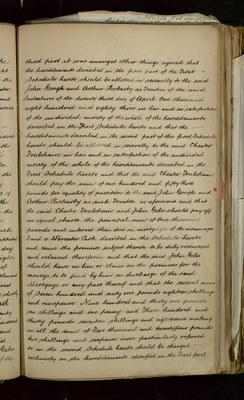 third part it was amongst other things agreed that
the hereditaments described in the first part of the First
Schedule hereto should be allotted in severalty to the said
John Gough and Arthur as Trustees of the said
Indenture of the twenty third day of April One thousand
eight hundred and eighty three in lieu and in satisfaction
of the undivided moiety of the whole of the hereditaments
described in the First Schedule hereto and that the
hereditaments described in the second part of the First Schedule
hereto should be allotted in severalty to the said Chester
in lieu and in satisfaction of the undivided
moiety of the whole of the hereditaments described in the
First Schedule hereto and that the said Chester
should pay the sum of one hundred and fifty three
pounds for equality of partition to the said John Gough and
Arthur as such Trustees as aforesaid and that
the said Chester and John Giles should pay off
in equal shares the principal sum of One thousand
pounds and interest then due on mortgage of the messuage
and described in the Schedule hereto
and cause the premises subject thereto to be duly reconveyed
and released therefrom and that the said John Giles
should have no lien or claim on the premises for the
moneys to be paid by him in discharge of the said
Mortgage or any part thereof and that the several sums
of Seven hundred and sixty one pounds eighteen shillings
and ninepence Nine hundred and thirty one pounds
six shillings and one penny and Three hundred and
thirty pounds seventeen shillings and eightpence making
in all the sum of Two thousand and twentyfour pounds
two shillings and sixpence more particularly referred
to in the second Schedule hereto should be charged
exclusively on the hereditaments specified in the First part